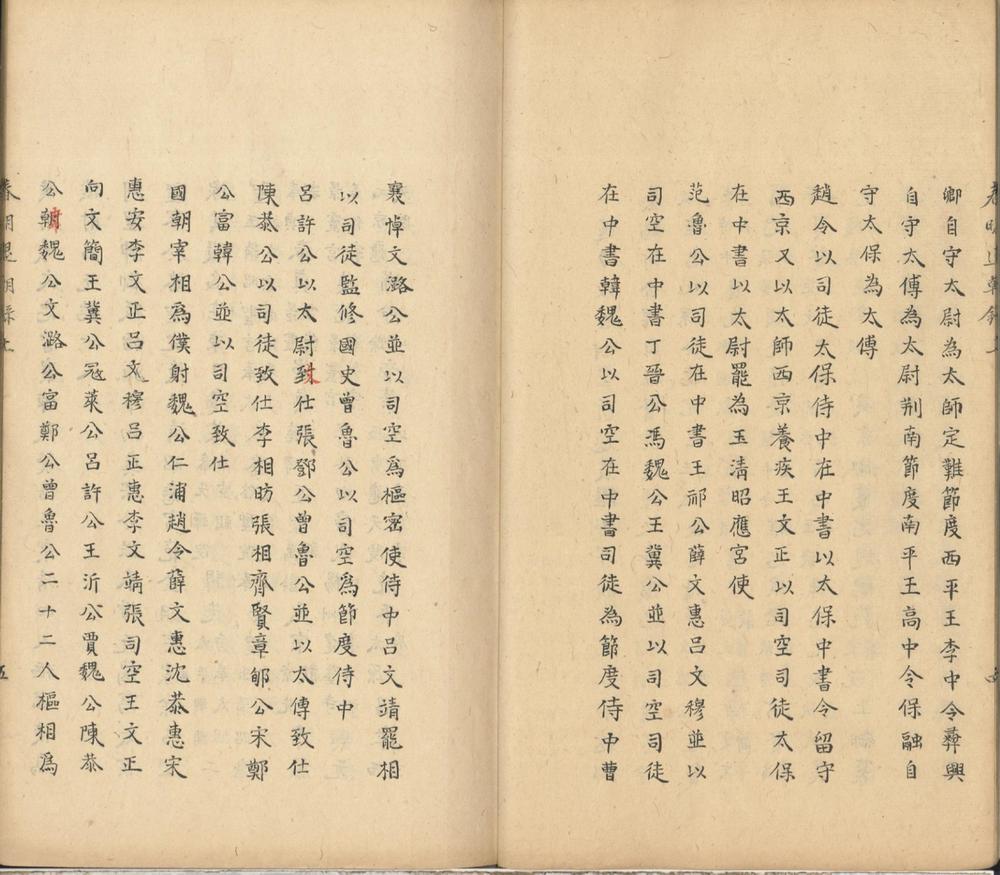 卿自守太尉為太師定難節度西平王李中令彝興
自守太傅為太尉荆南節度南平王高中令保融自
守太保為太傅
趙令以司徒太保侍中在中書以太保中書令留守
西京又以太師西京養疾王文正以司空司徒太保
在中書以太尉罷為玉清昭應宮使
范魯公以司徒在中書王祁公薛文惠吕文穆並以
司空在中書丁晉公馮魏公王冀公並以司空司徒
在中書韓魏公以司空在中書司徒為節度侍中曹
襄悼文潞公並以司空爲樞宻使侍中吕文靖罷相
以司徒監修國史曾魯公以司空爲節度侍中
吕許公以太尉致仕張鄧公曾魯公並以太傅致仕
陳恭公以司徒致仕李相昉張相齊賢章郇公宋鄭
公富韓公並以司空致仕
國朝宰相爲僕射魏公仁浦趙令薛文惠沈恭惠宋
惠安李文正吕文穆吕正惠李文靖張司空王文正
向文簡王冀公冦萊公吕許公王沂公賈魏公陳恭
公韓魏公文潞公富鄭公曾魯公二十二人樞相爲
春明退朝錄上
五